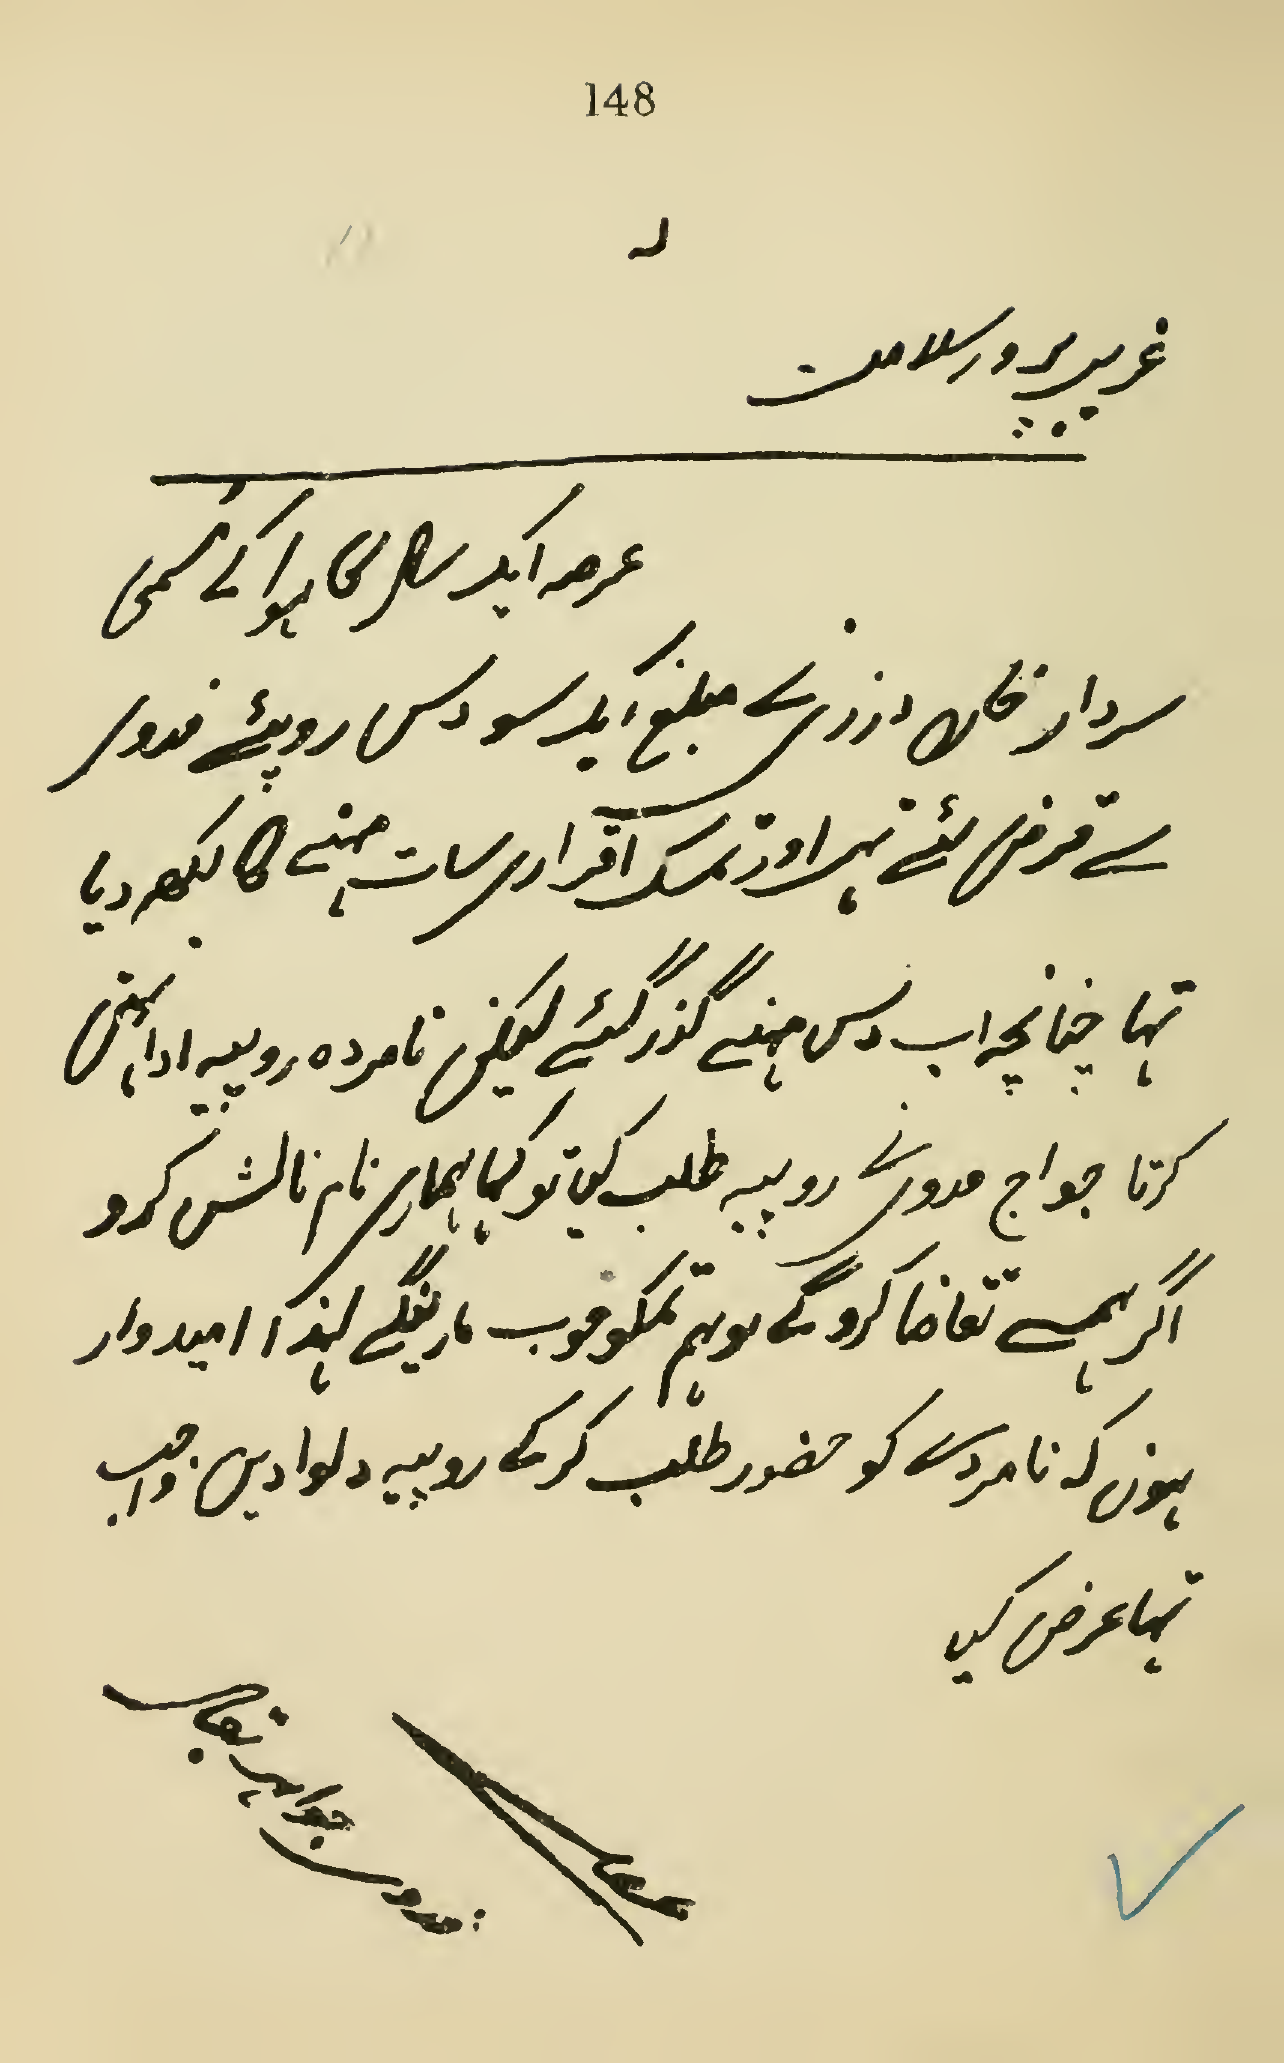 148
غریب پرور سلامت
عرصہ ایک سال کا ہوا کے مسمی
سردار خان درزی نے مبلغ ایک سو دس روپئے فدوی
سے قرض لئے تہے اور تمسک اقراری سات مہنے کا لکھہ دیا
تہا چنانچہ اب دس مہنے گذر گئے لیکن نامردہ روپیہ ادا نہیں
کرتا جو آج فدوی نے روپیہ طلب کیا تو کہا ہماری نام نالش کرو
اگر ہمسے تقاضا کروگے تو ہم تمکو خوب مارینگے لہذا امیدوار
ہوں کہ نامردے کو حضور طلب کرکے روپیہ دلوادیں واجب
تہا عرض کیا
فدوی جواہر بقال